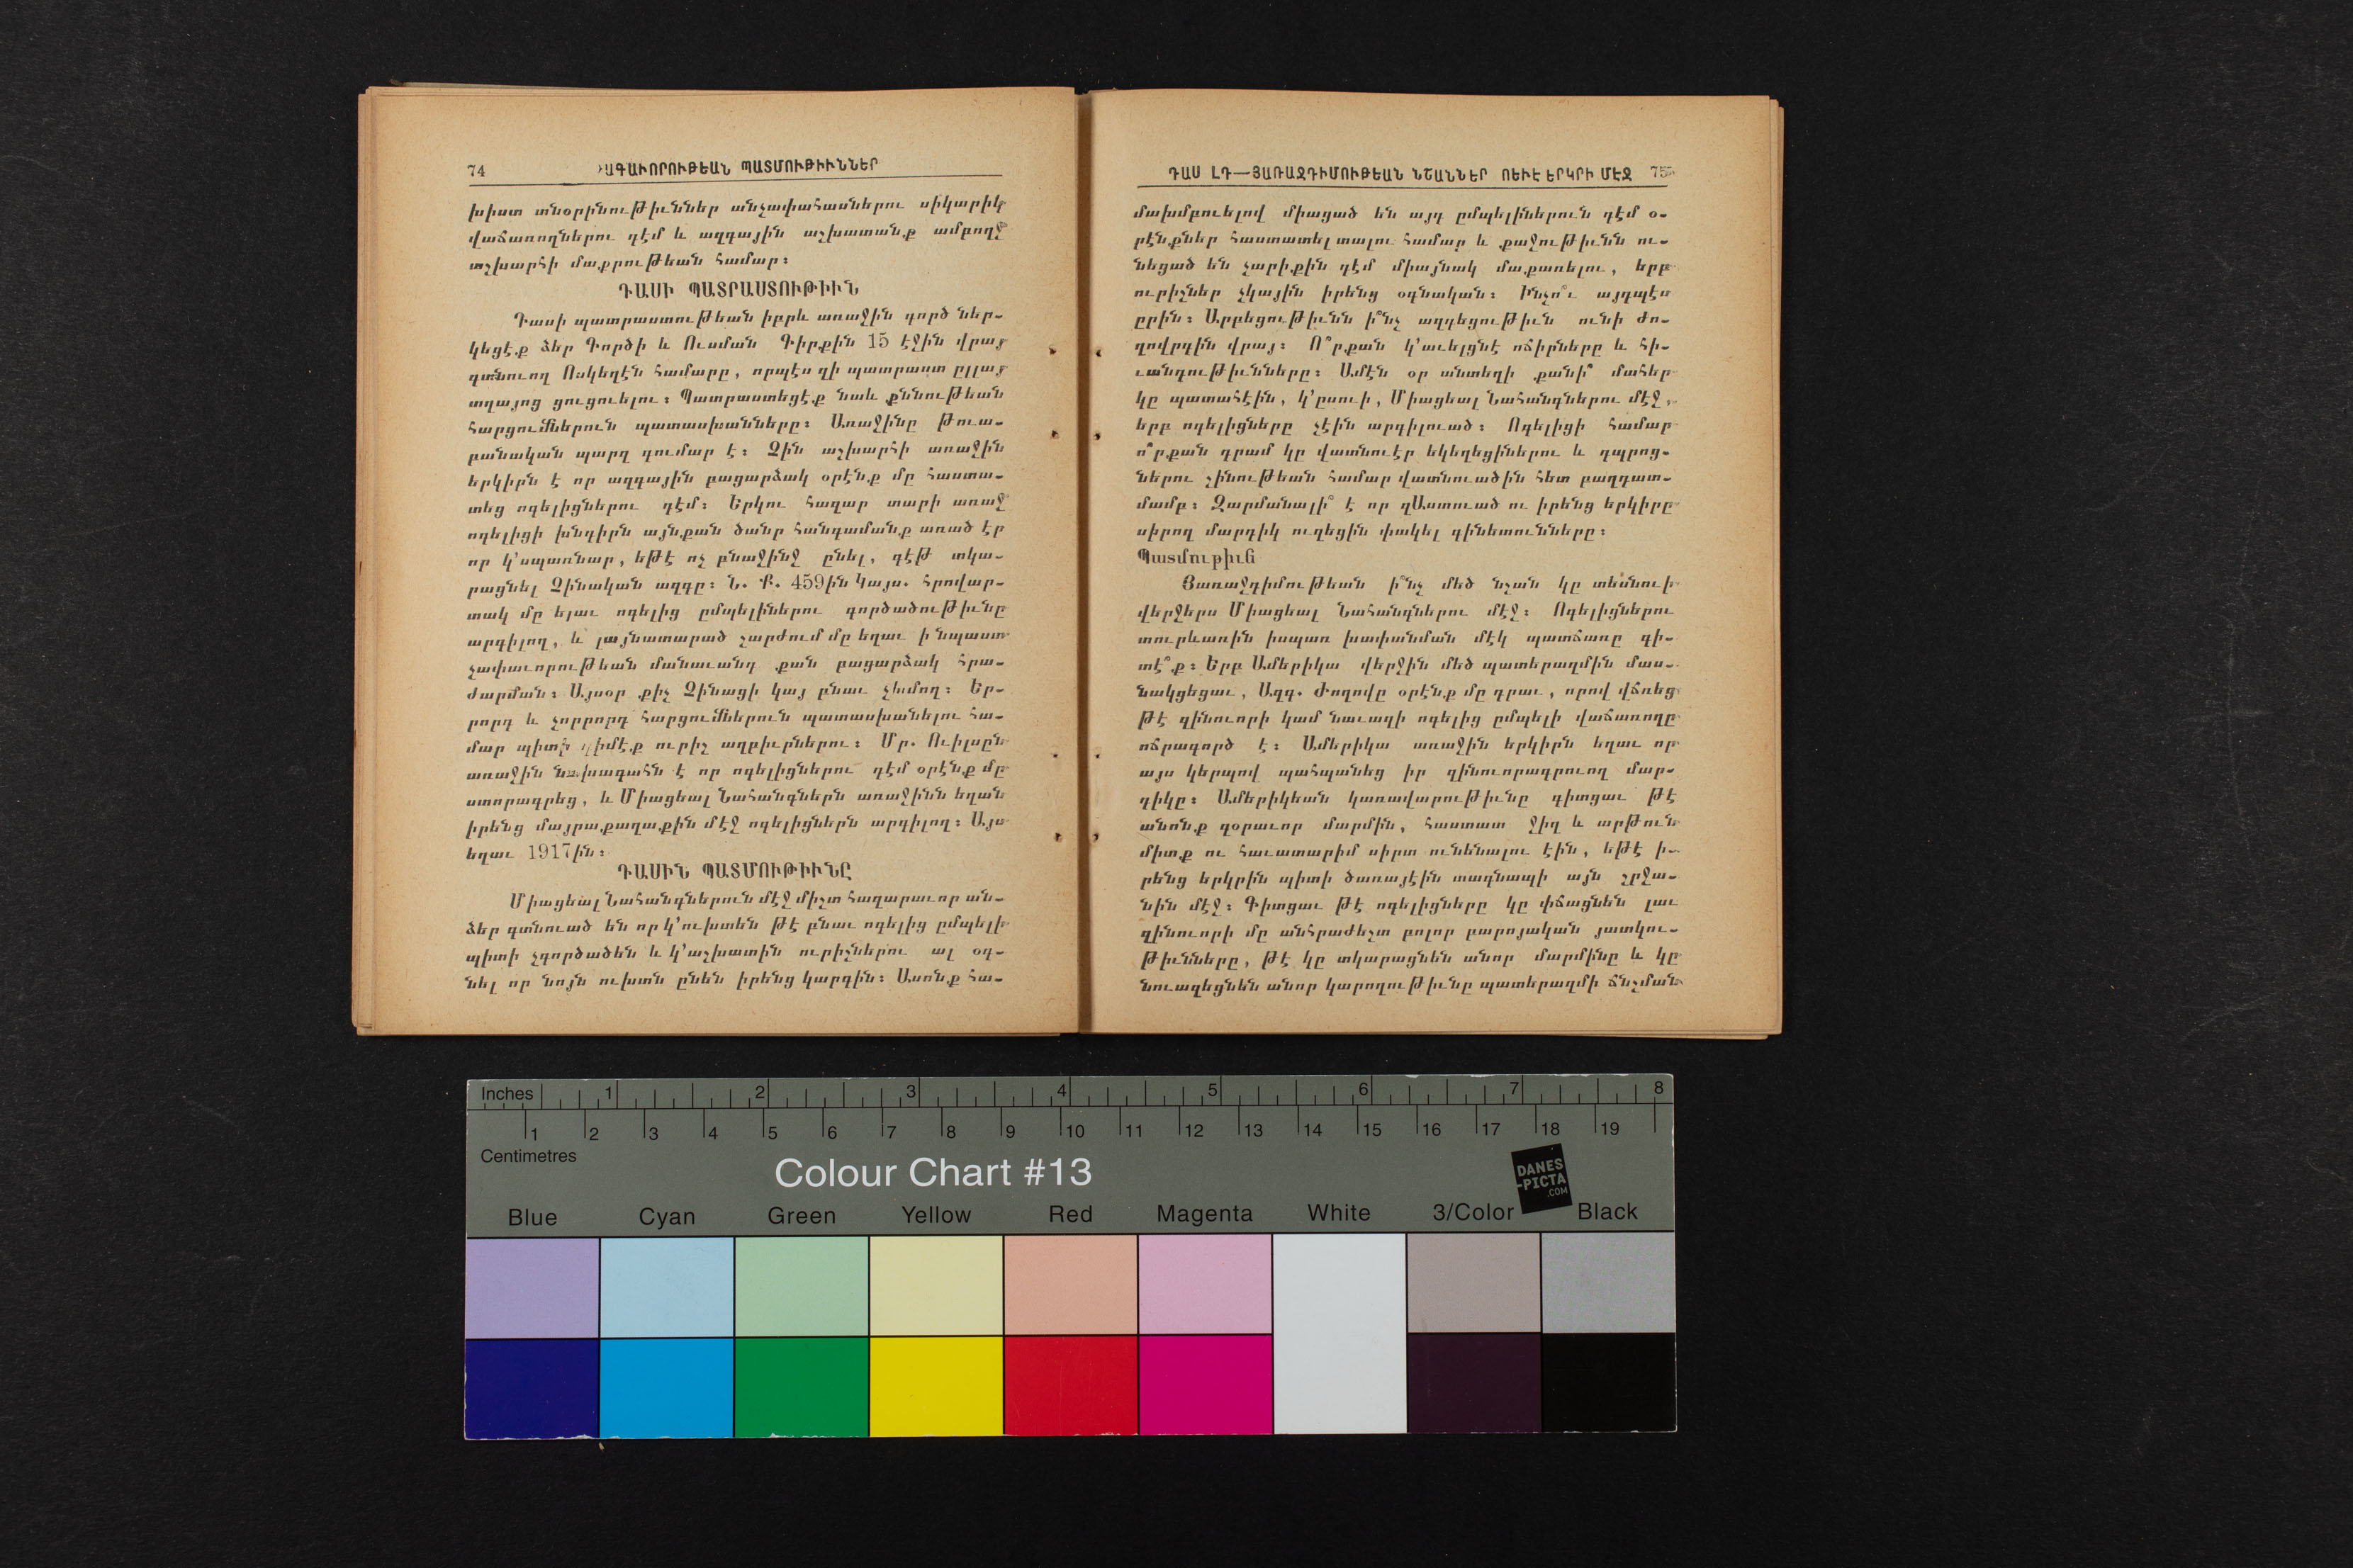 74 ԱԳԱՒՈՐՈՒԹԵԱՆ ՊԱՏՄՈՒԹԻՒՆՆԵՐ
խիստ տնօրինութիւններ անչափահասներու սիկարիկ
վաճառողներու դէմ և ազգային աշխատանք ամբողջ
աշխարհի մաքրութեան համար։
ԴԱՍԻ ՊԱՏՐԱՍՏՈՒԹԻՒՆ
Դասի պատրաստութեան իբրև առաջին գործ ներ-
կեցէք ձեր Գործի և Ուսման Գիրքին 15 էջին վրայ
գտնուող Ոսկեղէն համարը, որպէս զի պատրաստ ըլլայ
տղայոց ցուցուելու։ Պատրաստեցէք նաև քննութեան
հարցումներուն պատասխանները։ Առաջինը թուա-
բանական պարզ գումար է։ Չին աշխարհի առաջին
երկիրն է որ ազգային բացարձակ օրէնք մը հաստա-
տեց ոգելիցներու դէմ։ Երկու հազար տարի առաջ
ոգելիցի խնդիրն այնքան ծանր հանգամանք առած էր
որ կ՚սպառնար, եթէ ոչ բնաջինջ ընել, գէթ տկա-
րացնել Չինական ազգը։ Ն. Ք. 459ին Կայս. հրովար-
տակ մը ելաւ ոգելից ըմպելիներու գործածութիւնը
արգիլող, և լայնատարած շարժում մը եղաւ ի նպաստ
չափաւորութեան մանաւանդ քան բացարձակ հրա-
ժարման։ Այսօր քիչ Չինացի կայ բնաւ չխմող։ Եր-
րորդ և չորրորդ հարցումներուն պատասխանելու հա-
մար պիտի դիմէք ուրիշ աղբիւրներու։ Մր. Ուիլսըն
առաջին նախագահն է որ ոգելիցներու դէմ օրէնք մը
ստորագրեց, և Միացեալ Նահանգներն առաջինն եղան
իրենց մայրաքաղաքին մէջ ոգելիցներն արգիլող։ Այս
եղաւ 1917ին։
ԴԱՍԻՆ ՊԱՏՄՈՒԹԻՒՆԸ
Միացեալ Նահանգներուն մէջ միշտ հազարաւոր ան-
ձեր գտնուած են որ կ՚ուխտեն թէ բնաւ ոգելից ըմպելի
պիտի չգործածեն և կ՚աշխատին ուրիշներու ալ օգ-
նել որ նոյն ուխտն ընեն իրենց կարգին։ Ասոնք հա-
ԴԱՍ ԼԴ—ՅԱՌԱՋԴԻՄՈՒԹԵԱՆ ՆՇԱՆՆԵՐ ՈԵՒԷ ԵՐԿՐԻ ՄԷՋ 75
մախմբուելով միացած են այդ ըմպելիներուն դէմ օ-
րէնքներ հաստատել տալու համար և քաջութիւնն ու-
նեցած են չարիքին դէմ միայնակ մաքառելու, երբ
ուրիշներ չկային իրենց օգնական։ Ինչո՞ւ այդպէս
ըրին։ Արբեցութիւնն ի՞նչ ազդեցութիւն ունի ժո-
ղովրդին վրայ։ Ո՞րքան կ՚աւելցնէ ոճիրները և հի-
ւանդութիւնները։ Ամէն օր անտեղի քանի՞ մահեր
կը պատահէին, կ՚ըսուի, Միացեալ Նահանգներու մէջ,
երբ ոգելիցները չէին արգիլուած։ Ոգելիցի համար
ո՞րքան դրամ կը վատնուէր եկեղեցիներու և դպրոց-
ներու շինութեան համար վատնուածին հետ բաղդատ-
մամբ։ Զարմանալի՞ է որ զԱստուած ու իրենց երկիրը
սիրող մարդիկ ուզեցին փակել գինետունները։
Պատմութիւն
Յառաջդիմութեան ի՞նչ մեծ նշան կը տեսնուի
վերջերս Միացեալ Նահանգներու մէջ։ Ոգելիցներու
տուրևառին իսպառ խափանման մէկ պատճառը գի-
տէ՞ք։ Երբ Ամերիկա վերջին մեծ պատերազմին մաս-
նակցեցաւ, Ազգ. Ժողովը օրէնք մը դրաւ, որով վճռեց
թէ զինուորի կամ նաւազի ոգելից ըմպելի վաճառողը
ոճրագործ է։ Ամերիկա առաջին երկիրն եղաւ որ
այս կերպով պահպանեց իր զինուորագրուող մար-
դիկը։ Ամերիկեան կառավարութիւնը գիտցաւ թէ
անոնք զօրաւոր մարմին, հաստատ ջիղ և արթուն
միտք ու հաւատարիմ սիրտ ունենալու էին, եթէ ի-
րենց երկրին պիտի ծառայէին տագնապի այն շրջա-
նին մէջ։ Գիտցաւ թէ ոգելիցները կը փճացնեն լաւ
զինուորի մը անհրաժեշտ բոլոր բարոյական յատկու-
թիւնները, թէ կը տկարացնեն անոր մարմինը և կը
նուազեցնեն անոր կարողութիւնը պատերազմի ճնշման
Inches 1 2 3 4 5 6 7 8
1 2 3 4 5 6 7 8 9 10 11 12 13 14 15 16 17 18 19
Centimetres
Colour Chart #13
DANES
-PICTA
.COM
Blue Cyan Green Yellow Red Magenta White 3/Color Black